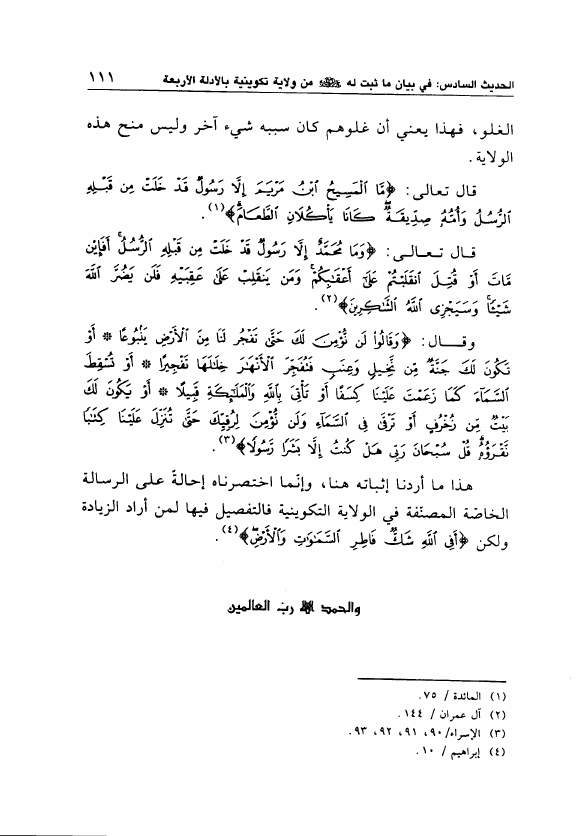 الحديث السادس: في بيان ما ثبت له ﷺ من ولاية تكوينية بالأدلة الأربعة ١١١
الغلو، فهذا يعني أن غلوهم كان سببه شيء آخر وليس منح هذه
الولاية.
قال تعالى: ﴿مَّا ٱلْمَسِيحُ ٱبْنُ مَرْيَمَ إِلَّا رَسُولٌ قَدْ خَلَتْ مِن قَبْلِهِ
ٱلرُّسُلُ وَأُمُّهُۥ صِدِّيقَةٌ ۖ كَانَا يَأْكُلَانِ ٱلطَّعَامَ﴾(١).
قال تعالى: ﴿وَمَا مُحَمَّدٌ إِلَّا رَسُولٌ قَدْ خَلَتْ مِن قَبْلِهِ ٱلرُّسُلُ ۚ أَفَإِي۟ن
مَّاتَ أَوْ قُتِلَ ٱنقَلَبْتُمْ عَلَىٰٓ أَعْقَٰبِكُمْ ۚ وَمَن يَنقَلِبْ عَلَىٰ عَقِبَيْهِ فَلَن يَضُرَّ ٱللَّهَ
شَيْـًٔا ۗ وَسَيَجْزِى ٱللَّهُ ٱلشَّٰكِرِينَ﴾(٢).
وقال: ﴿وَقَالُوا۟ لَن نُّؤْمِنَ لَكَ حَتَّىٰ تَفْجُرَ لَنَا مِنَ ٱلْأَرْضِ يَنۢبُوعًا * أَوْ
تَكُونَ لَكَ جَنَّةٌ مِّن نَّخِيلٍ وَعِنَبٍ فَتُفَجِّرَ ٱلْأَنْهَٰرَ خِلَٰلَهَا تَفْجِيرًا * أَوْ تُسْقِطَ
ٱلسَّمَآءَ كَمَا زَعَمْتَ عَلَيْنَا كِسَفًا أَوْ تَأْتِىَ بِٱللَّهِ وَٱلْمَلَٰٓئِكَةِ قَبِيلًا * أَوْ يَكُونَ لَكَ
بَيْتٌ مِّن زُخْرُفٍ أَوْ تَرْقَىٰ فِى ٱلسَّمَآءِ وَلَن نُّؤْمِنَ لِرُقِيِّكَ حَتَّىٰ تُنَزِّلَ عَلَيْنَا كِتَٰبًا
نَّقْرَؤُهُۥ ۗ قُلْ سُبْحَانَ رَبِّى هَلْ كُنتُ إِلَّا بَشَرًا رَّسُولًا﴾(٣).
هذا ما أردنا إثباته هنا، وإنّما اختصرناه إحالةً على الرسالة
الخاصّة المصنّفة في الولاية التكوينية فالتفصيل فيها لمن أراد الزيادة
ولكن ﴿أَفِى ٱللَّهِ شَكٌّ فَاطِرِ ٱلسَّمَٰوَٰتِ وَٱلْأَرْضِ﴾(٤).
والحمد لله رب العالمين
(١) المائدة / ٧٥.
(٢) آل عمران / ١٤٤.
(٣) الإسراء/ ٩٠، ٩١، ٩٢، ٩٣.
(٤) إبراهيم / ١٠.